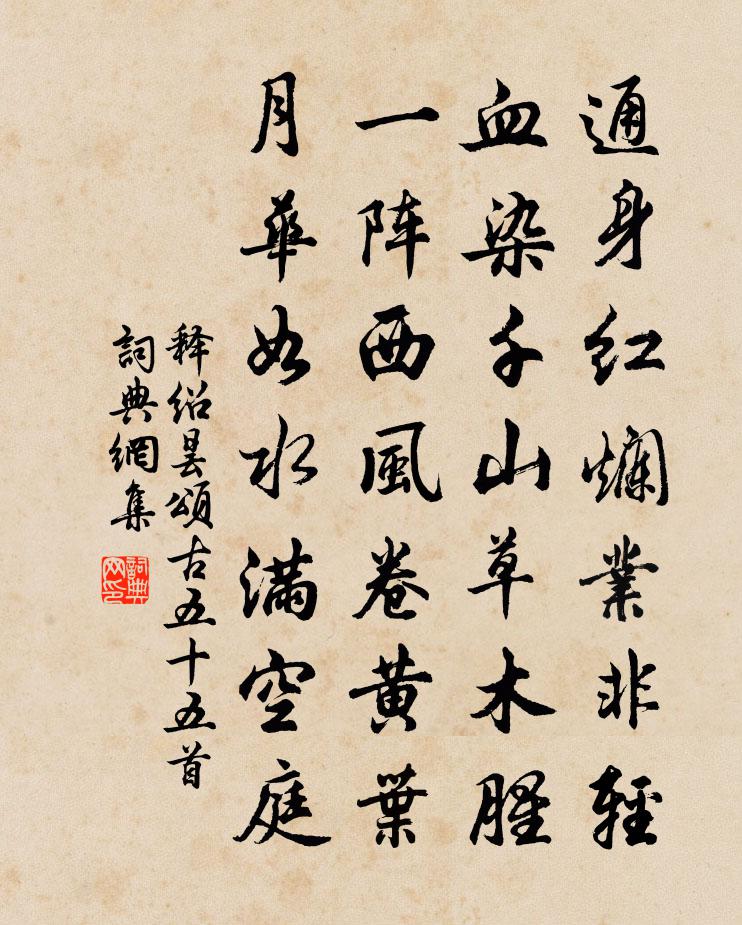 通身红爛業非輕
血染千山草木腥
一阵西風卷黄葉
月華如水滿空庭
释绍曇頌古五十五首
詞典網集
詞典网印